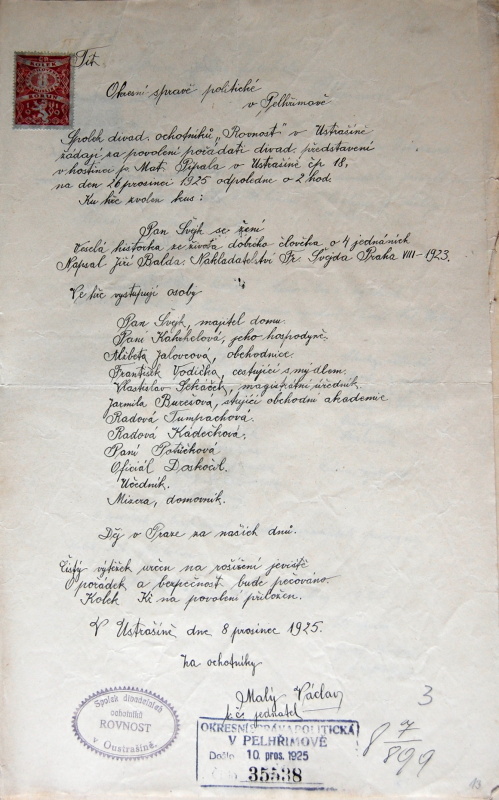 Tit.
Okresní správě politické
v Pelhřimově
Spolek divad. ochotníků „Rovnost" v Ustrašíně
žádají za povolení pořádati divad. představení
v hostinci p. Mat. Pípala v Ustrašíně čp 18,
na den 26 prosinci 1925 odpoledne o 2 hod.
Ku hře zvolen kus:
Pan Švejk se žení
Veselá historka ze života dobrého člověka o 4 jednáních
Napsal Jiří Balda. Nakladatelství Fr. Švejda Praha VIII-1923.
Ve hře vystupují osoby
Pan Švejk, majitel domu.
Paní jeho hospodyně.
Alžběta Jalovcová, obchodnice.
František Vodička, cestující s mýdlem.
Vlastislav magistrátní úředník.
Jarmila Burešová, obchodní akademie
Radová Tumpachová.
Radová Kádečková.
Paní
Oficiál Doskočil.
Účedník.
Mizera, domovník.
Děj v Praze za našich dnů.
Čistý výtěžek určen na rošíření jeviště
O pořádek a bezpečnost bude pečováno.
Kolek Kč na povolení přiložen.
V Ustrašíně dne 8 prosinec 1925.
Za ochotníky
Malý Václav
t. č. jednatel
Spolek divadelních
ochotníků
ROVNOST
v Oustrašíně.
OKRESNÍ SPRÁVA POLITICKÁ
V PELHŘIMOVĚ
Došlo 10. pros. 1925
35538
3
8 7/899
13